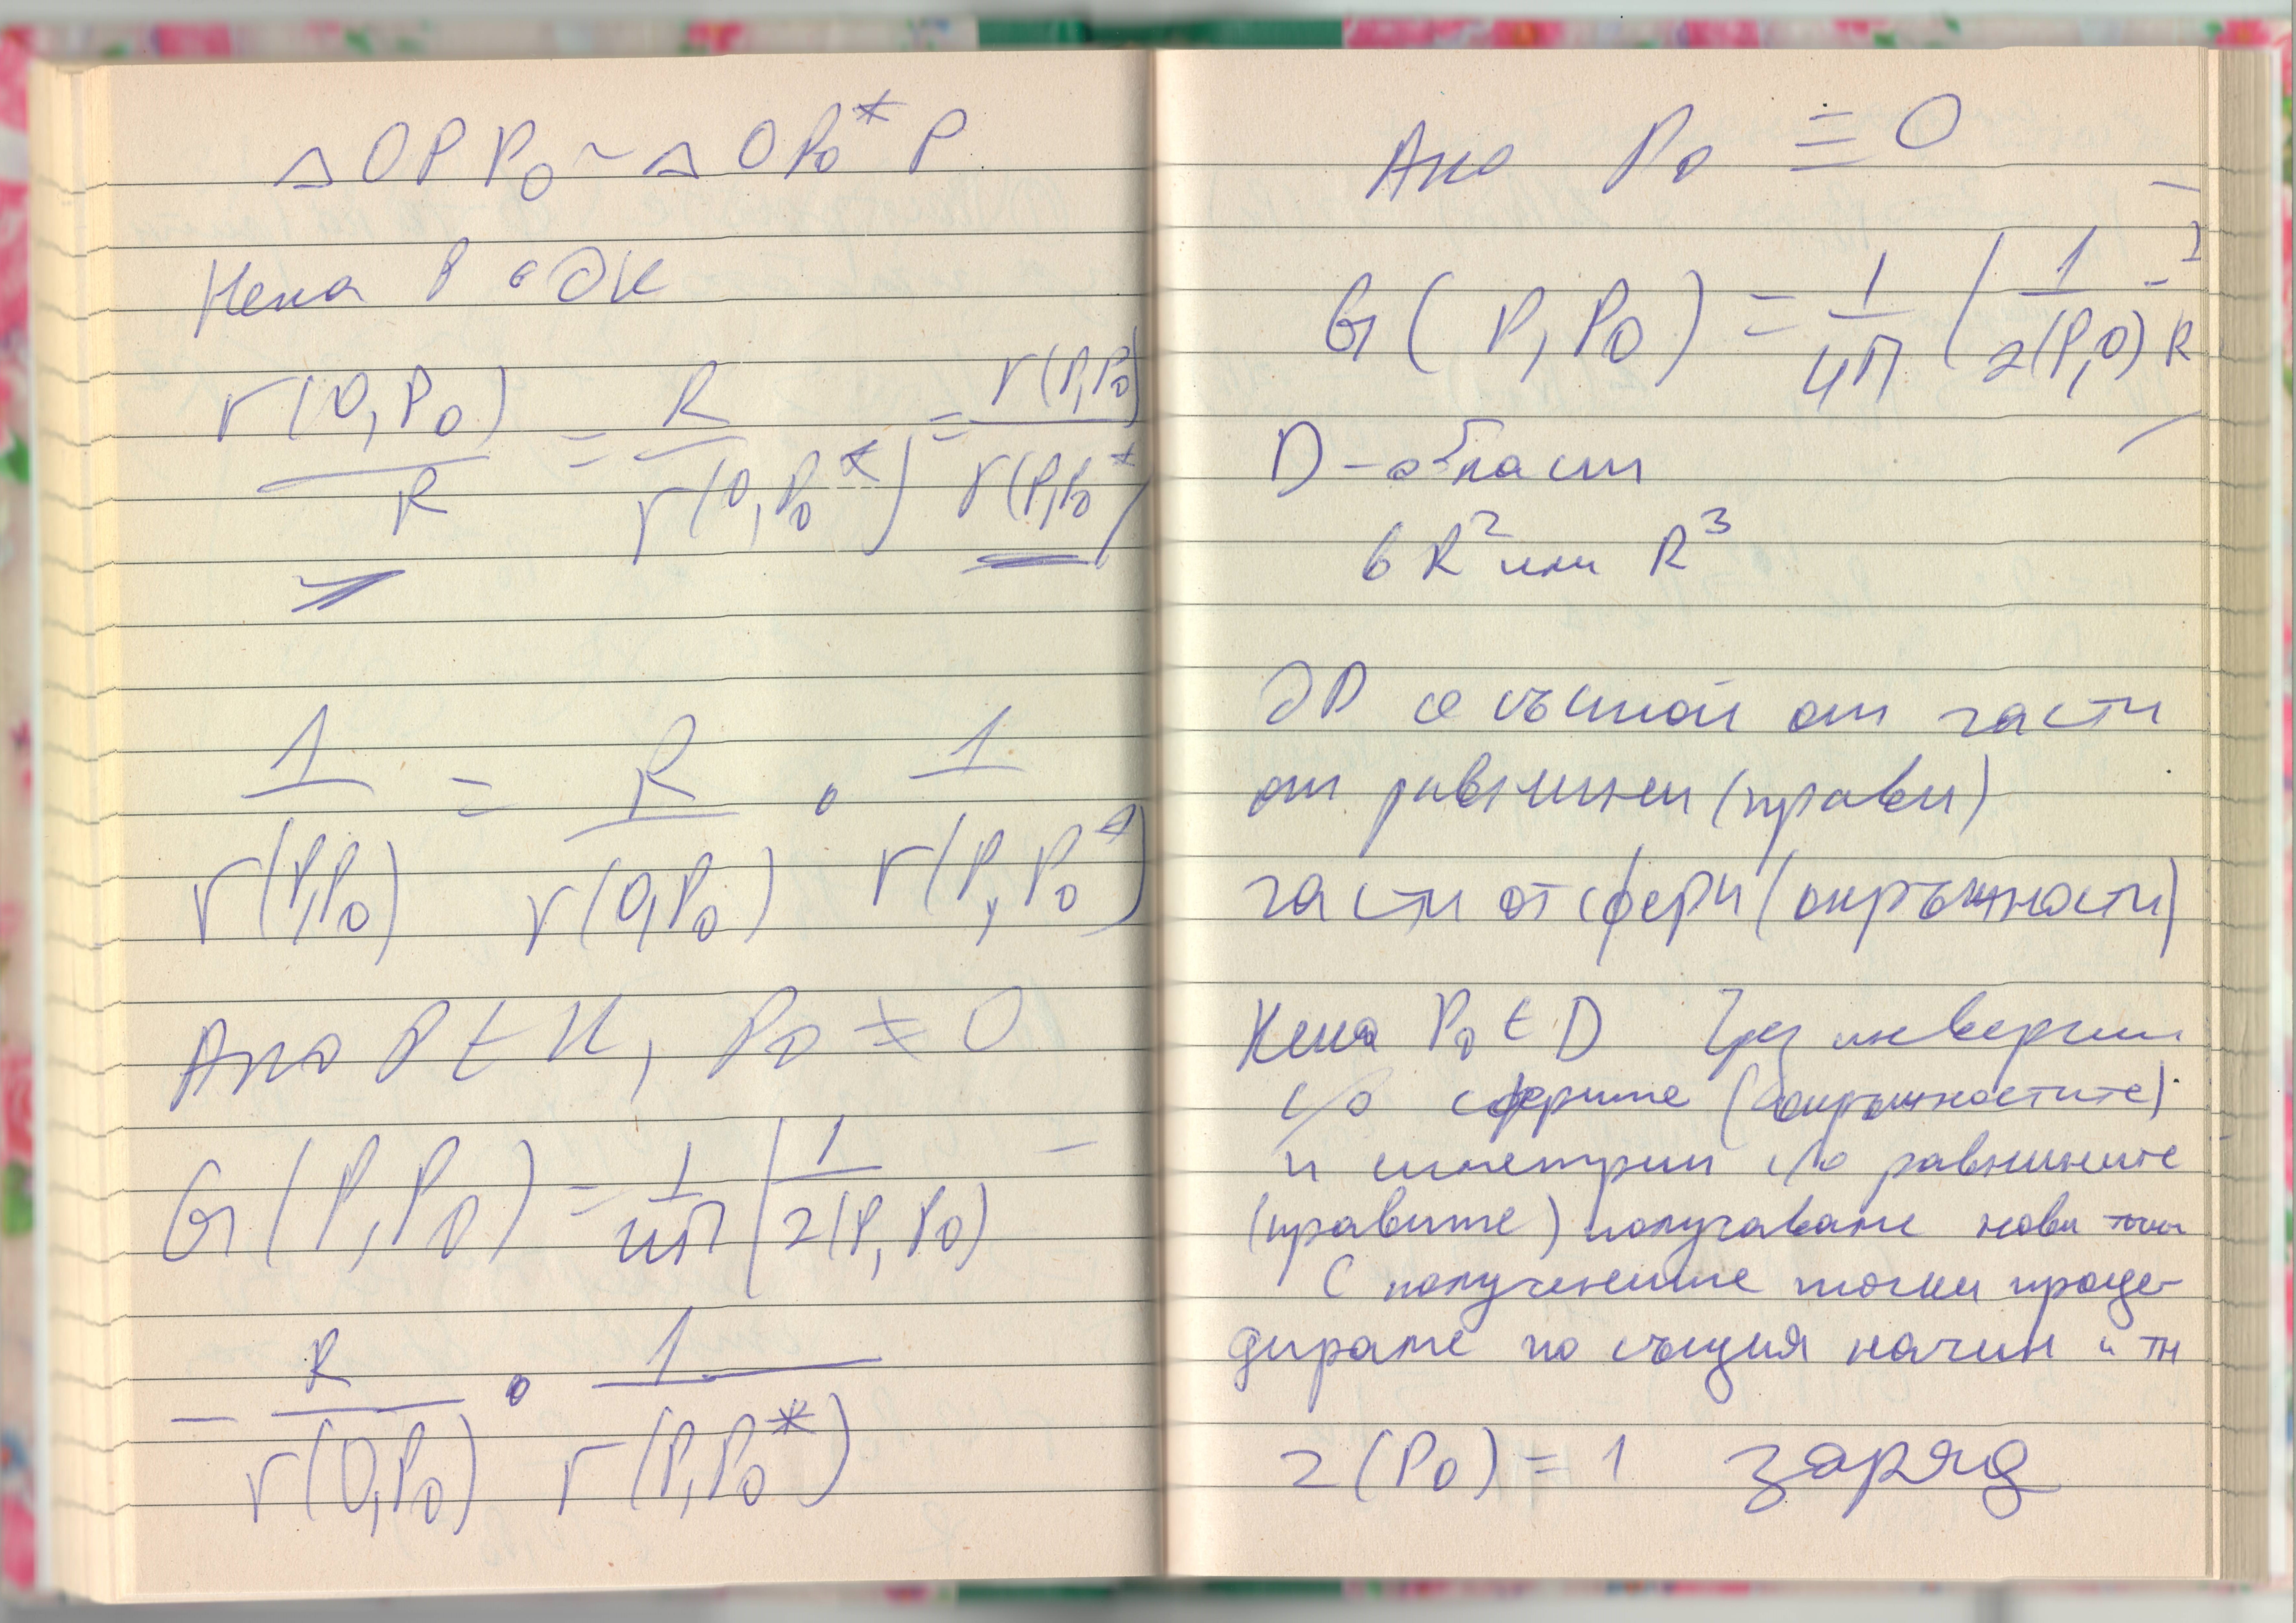 △OPP₀ ~ △OP₀*P
Нека P ∈ ∂K
r(O,P₀)/R = R/r(O,P₀*) = r(P,P₀)/r(P,P₀*)
1/r(P,P₀) = R/r(O,P₀) · 1/r(P,P₀*)
Ако P ∈ K, P₀ ≠ O
G(P,P₀) = 1/4π (1/r(P,P₀) –
– R/r(O,P₀) · 1/r(P,P₀*)
Ако P₀ ≡ O
G(P,P₀) = 1/4π (1/r(P,O) - 1/R
D – област
в R² или R³
∂D се състои от части
от равнини (прави)
части от сфери (окръжности)
Нека P₀ ∈ D Чрез инверсии
с/о сферите (окръжностите)
и симетрии с/о равнините
(правите) получаваме нови точки
С получените точки проце-
дираме по същия начин и тн
r(P₀) = 1 заряд